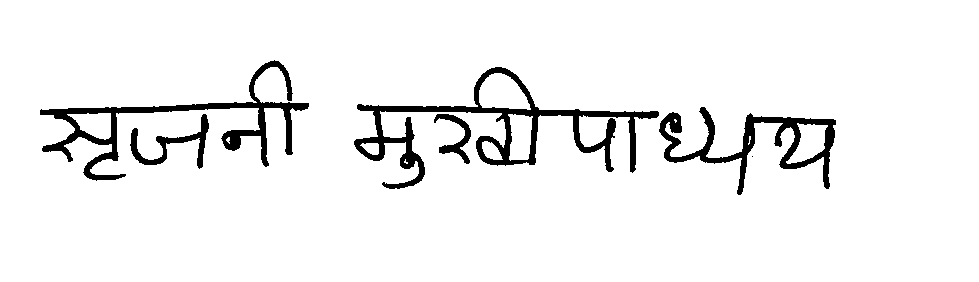 सृजनी मुखीपाध्यय